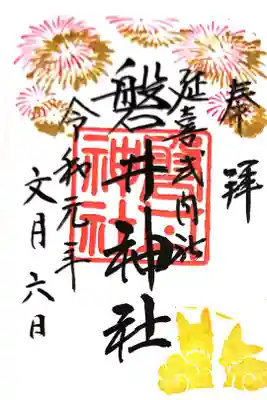 奉拝
延喜式内社
磐井神社
令和元年
文月六日